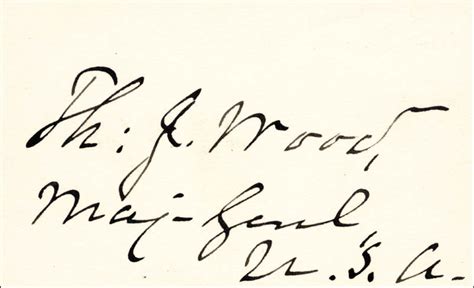 Th: J. Wood,
Maj-Genl,
U. S. A.